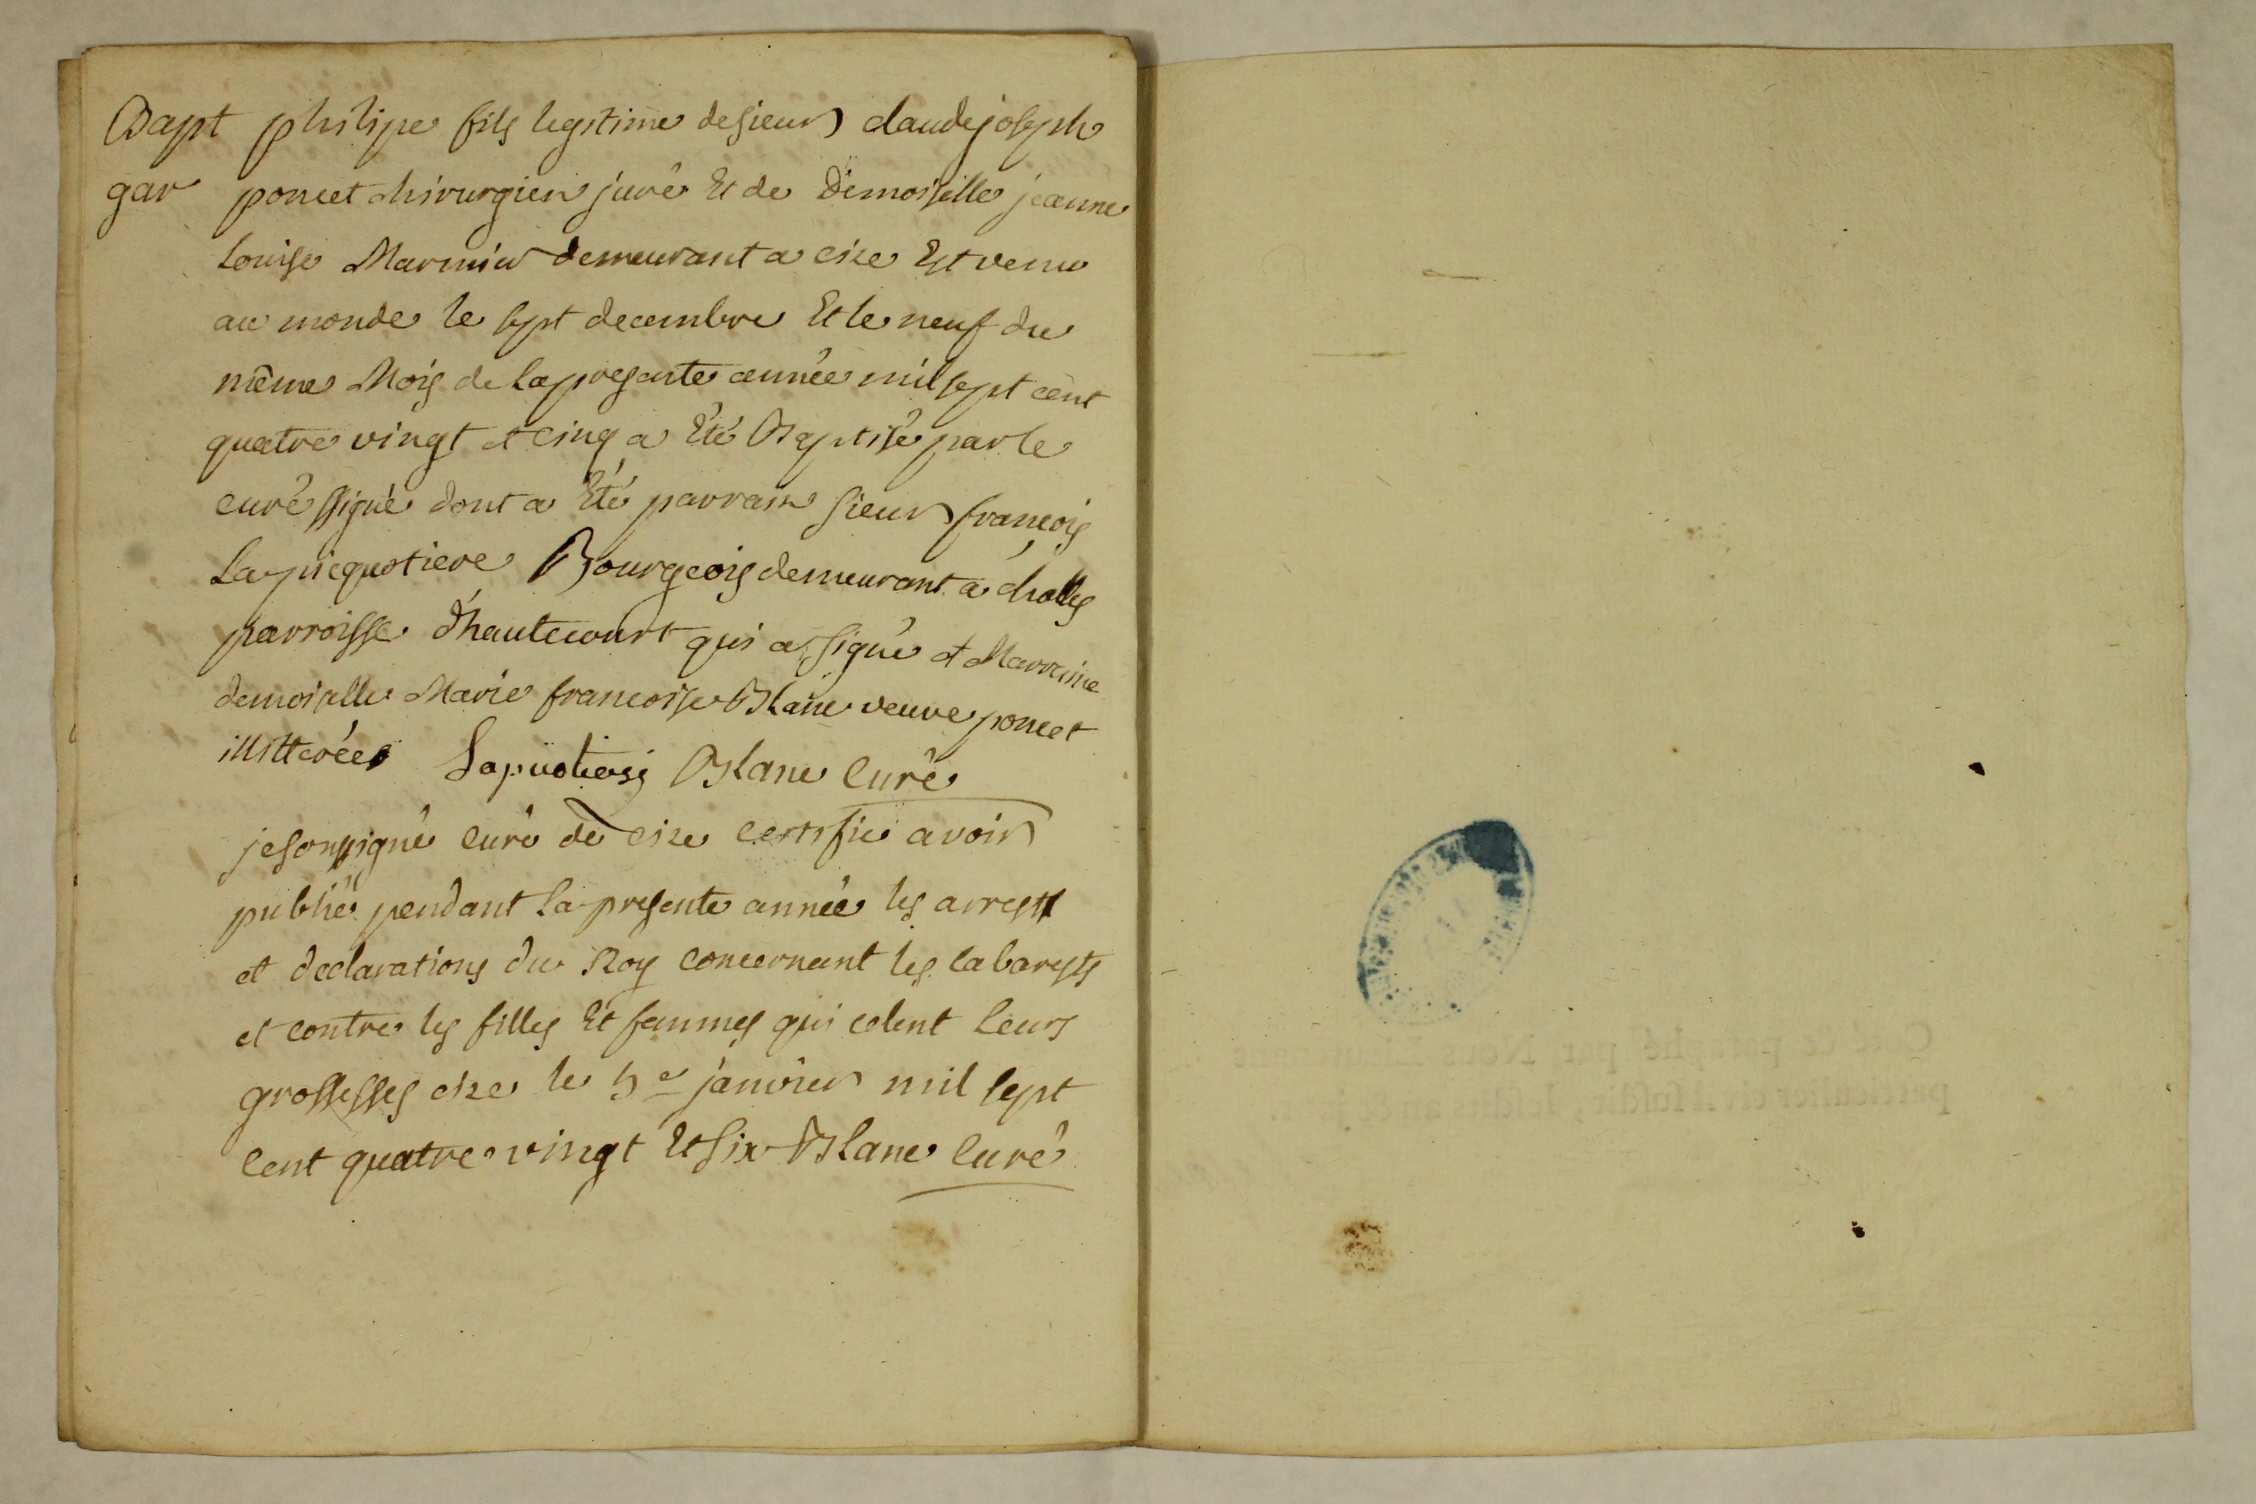 Bapt philipe fils legitime de sieur claude joseph
gar poncet chirurgien juré Et de Demoiselle jeanne
Louise Marmier demeurant a cize Est venu
au monde le sept decembre Et le neuf du
même Mois de la presente année mil sept cent
quatre vingt et cinq a Eté Baptisé par le
curé ssigné dont a Eté parrain sieur françois
Bourgeois demeurant a challes
parroisse d'hautecourt qui a signé et Marraine
demoiselle Marie francoise Blanc veuve poncet
illitterée Blanc Curé
je soussigné Curé de cize certifie avoir
publié pendant la presente année les arrests
et declarations du Roy concernant les cabarests
et contre les filles Et femmes qui celent leurs
grossesses cize le 5e janvier mil sept
Cent quatre vingt Et six Blanc Curé